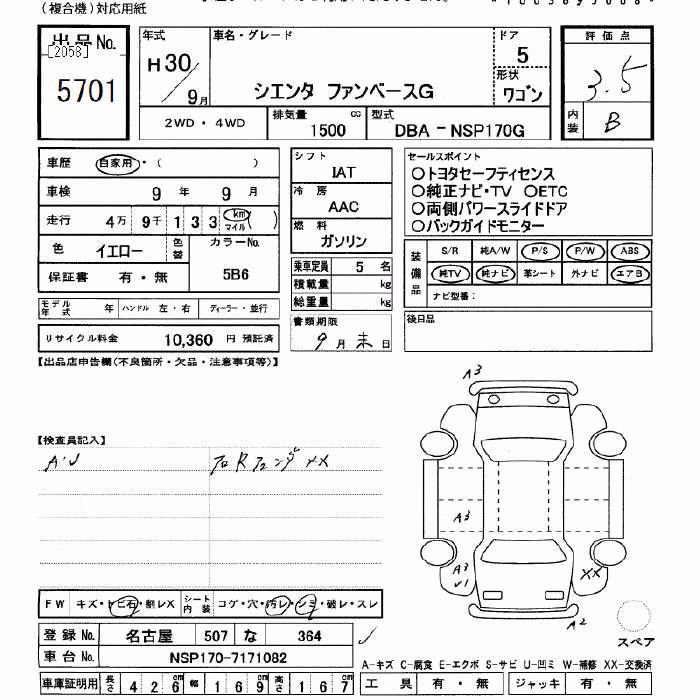 (複合機)対応用紙
出品No.
[2058]
5701
年式
H30
9月
車名・グレード
シエンタ ファンベースG
ドア
5
形状
ワゴン
2WD・4WD
排気量 cc
1500
型式
DBA-NSP170G
評価点
3.5
内装
B
車歴 自家用・( )
車検 9年 9月
走行 4万 9千 1 3 3 km マイル ( )
色 イエロー 色替 カラーNo.
保証書 有・無 5B6
モデル年式 年 ハンドル 左・右 ディーラー・並行
リサイクル料金 10,360 円 預託済
シフト
IAT
冷房
AAC
燃料
ガソリン
乗車定員 5 名
積載量 kg
総重量 kg
書類期限
9月 末日
セールスポイント
○トヨタセーフティセンス
○純正ナビ・TV ○ETC
○両側パワースライドドア
○バックガイドモニター
装備品
S/R 純A/W P/S P/W ABS
純TV 純ナビ 革シート 外ナビ エアB
ナビ型番:
後日品
【出品店申告欄(不良箇所・欠品・注意事項等)】
【検査員記入】
A・U
フロRフェンダ XX
A3
A3
A3
U1
XX
A2
スペア
FW キズ・トビ石・割レX シート内装 コゲ・穴・汚レ・シミ・破レ・スレ
登録No. 名古屋 507 な 364
車台No. NSP170-7171082
車庫証明用 長さ 4 2 6 cm 幅 1 6 9 cm 高さ 1 6 7 cm
A-キズ C-腐食 E-エクボ S-サビ U-凹ミ W-補修 XX-交換済
工具 有・無 ジャッキ 有・無